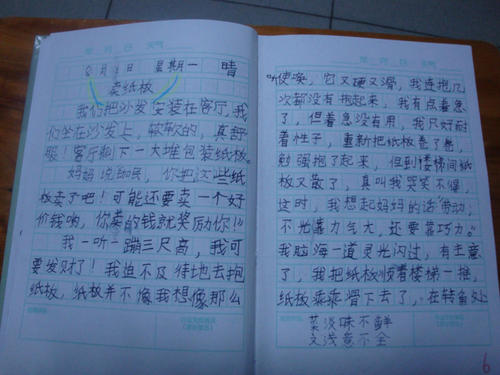 8月1日 星期一 晴
卖纸板
我们把沙发安装在客厅,我
们坐在沙发上,软软的,真舒
服!客厅剩下一大堆包装纸板。
妈妈说: 你把这些纸
板卖了吧!可能还要卖一个好
价钱哟,你卖的钱就奖励你!”
我一听一蹦三尺高,我可
要发财了!我迫不及待地去抱
纸板,纸板并不像我想像那么
听使唤,它又硬又滑,我连抱几
次都没有抱起来,我有点着急
了,但着急没有用,我只好耐
着性子,重新把纸板卷了卷,
勉强抱了起来,但到楼梯间纸
板又散了,真叫我哭笑不得,
这时,我想起妈妈的话“劳动,
不光靠力气大,还要靠巧力。”
我脑海一道灵光闪过,有主意
了,我把纸板顺着楼梯一推,
纸板乖乖滑下去了,在转角处
菜淡味不鲜
文浅意不全
6